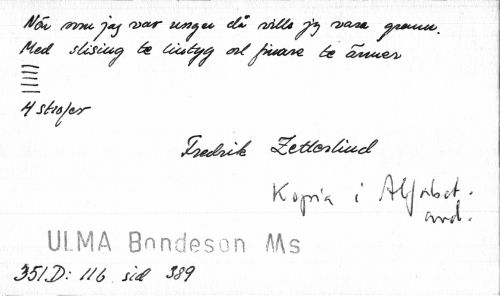 När som jag var unger då ville jag vara grann.
Med slising te lintyg och finare te änner
4 strofer
Fredrik Zetterlind
Kopia i Alfabet.
ord.
ULMA Bondeson Ms
351.D: 116 sid 389